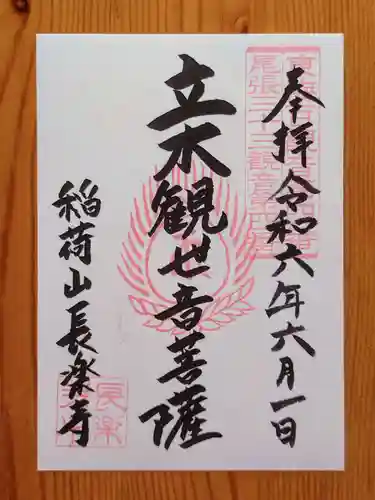 奉拝令和六年六月一日
立木観世音菩薩
稲荷山長楽寺
尾張三十三観音
長楽